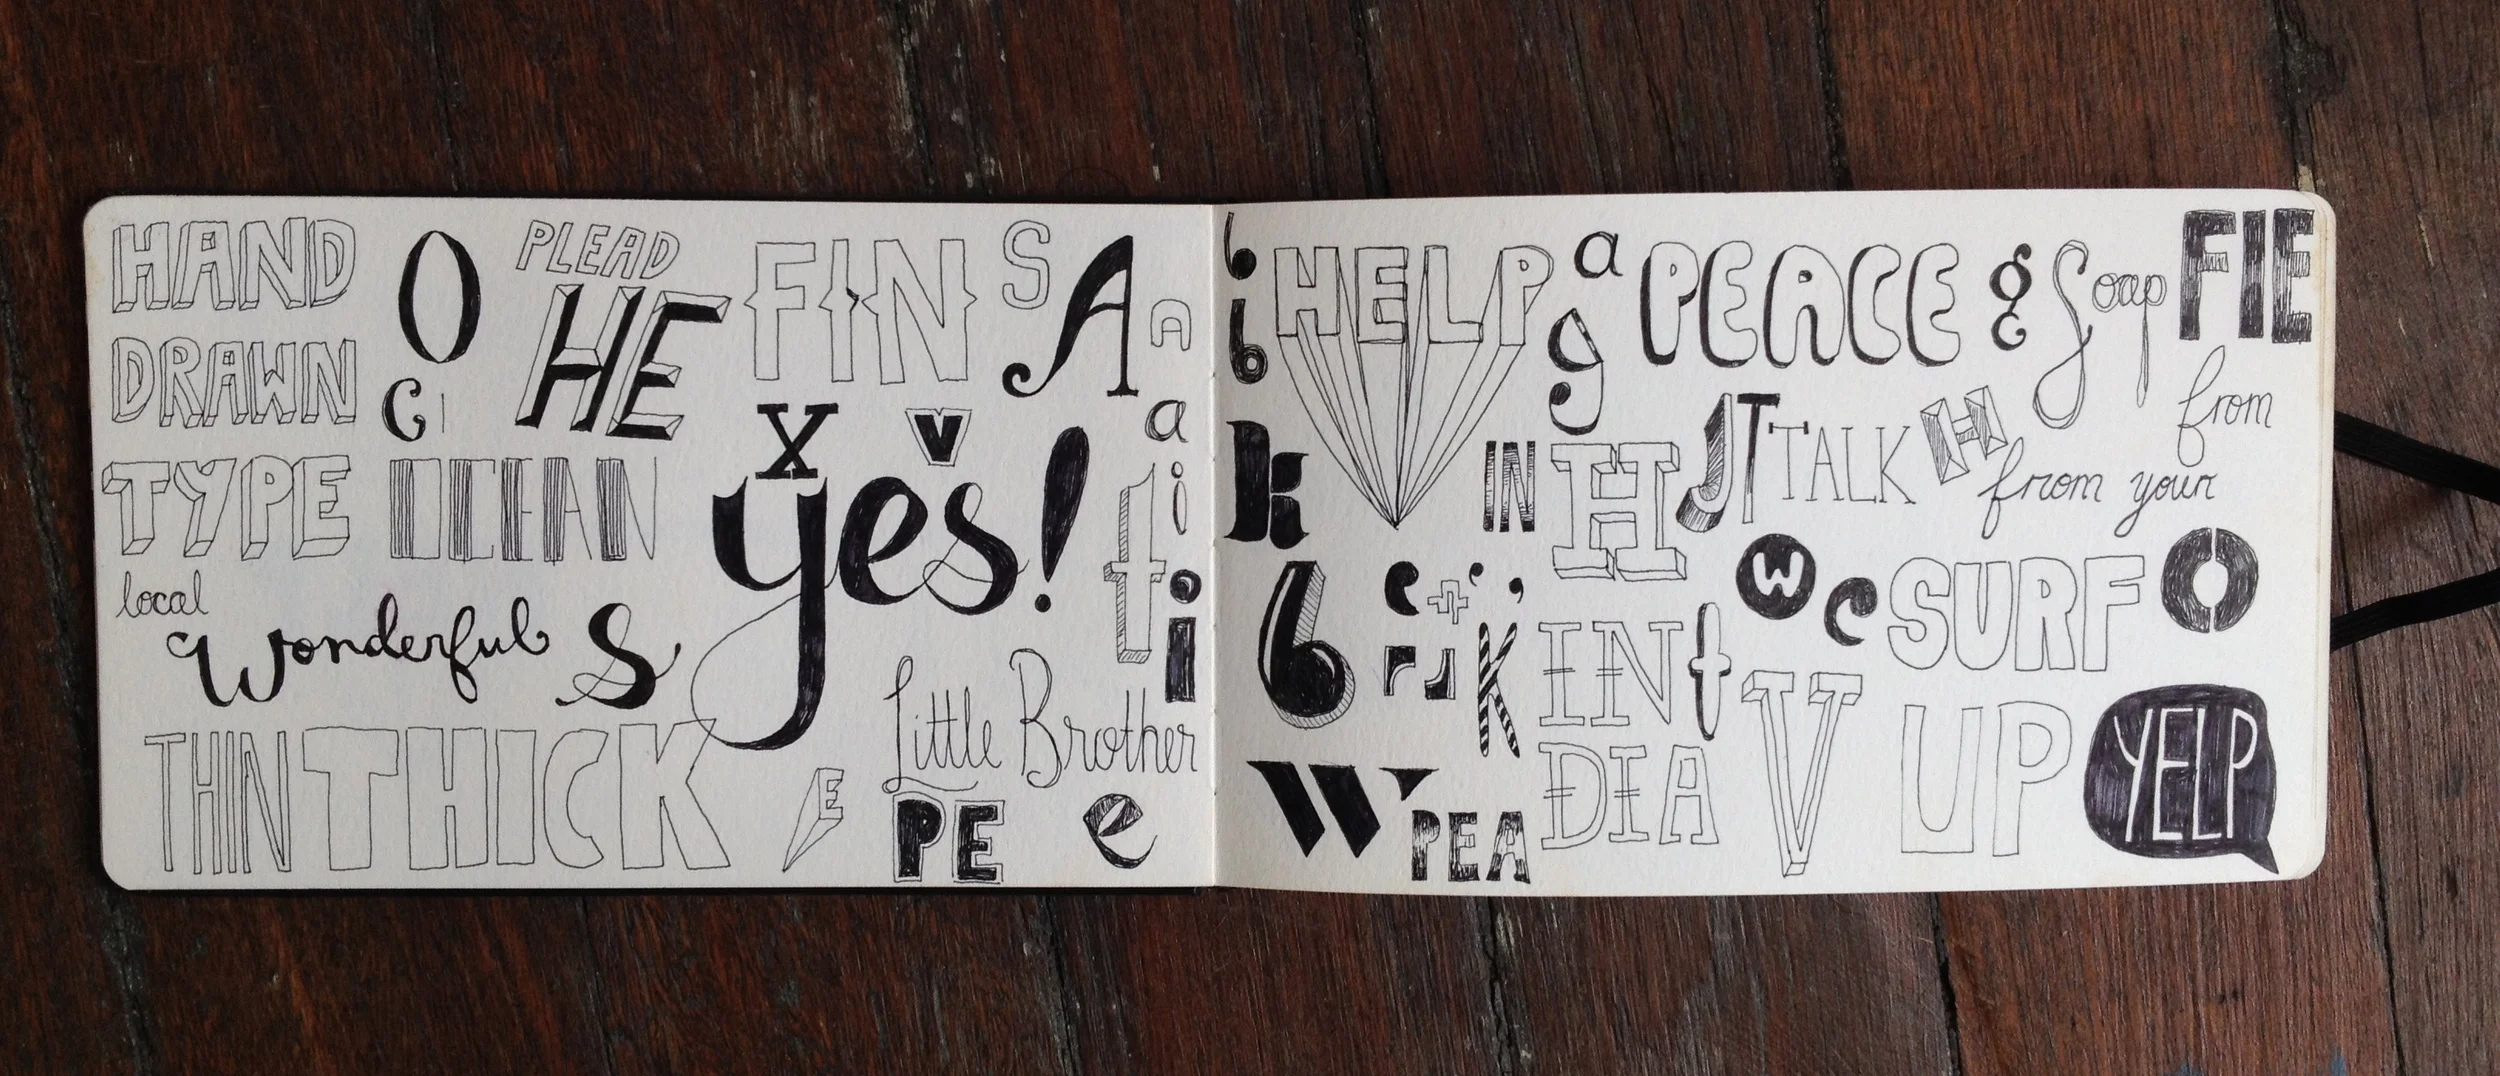 HAND
DRAWN
TYPE
local
Wonderful
THIN THICK
O
c
PLEAD
HE
FIN
S
A
a
X
v
yes!
a
i
t
i
S
Little Brother
E
PE
e
b
i
b
HELP
a
g
PEACE
g
Soap
FIE
from
k
IN
H
JT
TALK
H
from your
b
e
r
K
INDIA
t
We
SURF
O
W
PEA
V
UP
YELP